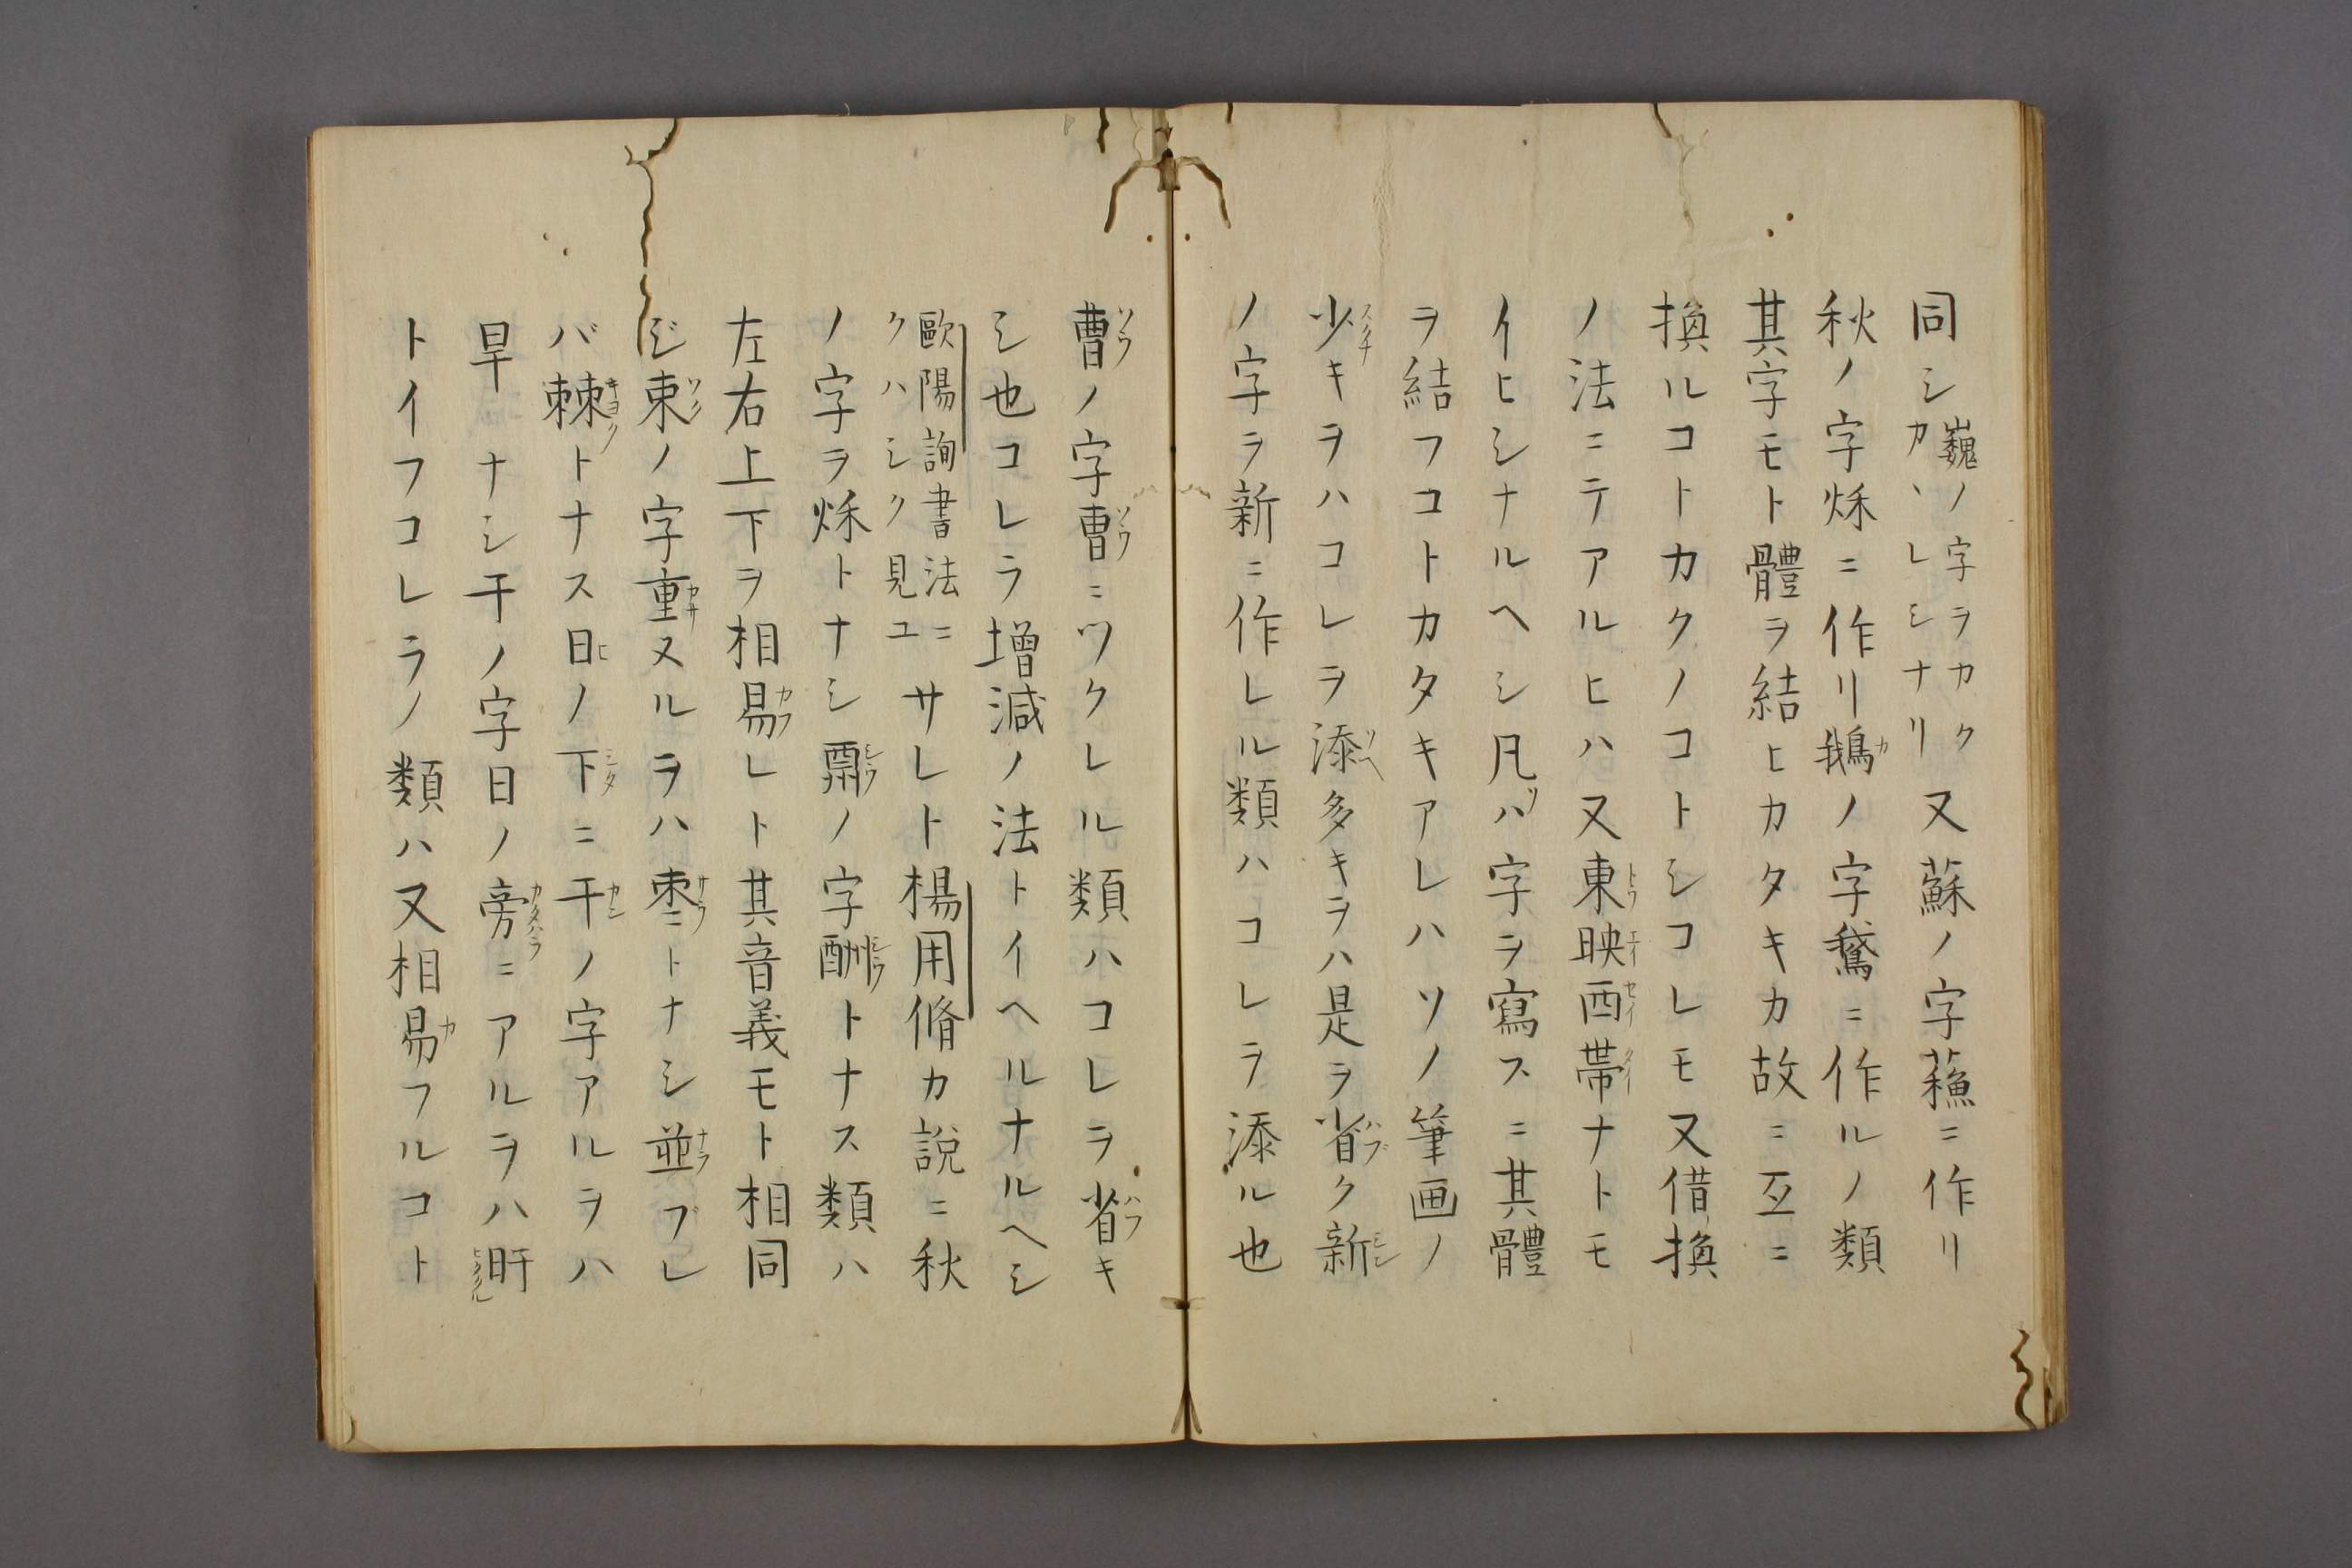 同シ巍ノ字ヲカクカヽレシナリ又蘇ノ字蘓ニ作リ
秋ノ字秌ニ作リ鵝カノ字鵞ニ作ルノ類
其字モト體ヲ結ヒカタキカ故ニ互ニ
換ルコトカクノコトシコレモ又借換
ノ法ニテアルヒハ又東トウ映エイ西セイ帯タイナトモ
イヒシナルヘシ凡ソハ字ヲ寫スニ其體
ヲ結フコトカタキアレハソノ筆画ノ
少スクナキヲハコレヲ添ソヘ多キヲハ是ヲ省ハブク新シン
ノ字ヲ新ニ作レル類ハコレヲ添ル也
曹ソウノ字曺ソウニツクレル類ハコレヲ省ハフキ
シ也コレラ増減ノ法トイヘルナルヘシ
歐陽詢書法ニクハシク見ユサレト楊用脩カ説ニ秋
ノ字ヲ秌トナシ酬シウトナス類ハ
左右上下ヲ相易カフレト其音義モト相同
ジ朿ノ字重カサヌルヲハ棗サウトナシ並ナラブレ
バ棘キヨクトナス日ヒノ下シタニ干カンノ字アルヲハ
旱ナシ干ノ字日ノ旁カタハラニアルヲハ旰
トイフコレラノ類ハ又相易カフルコト